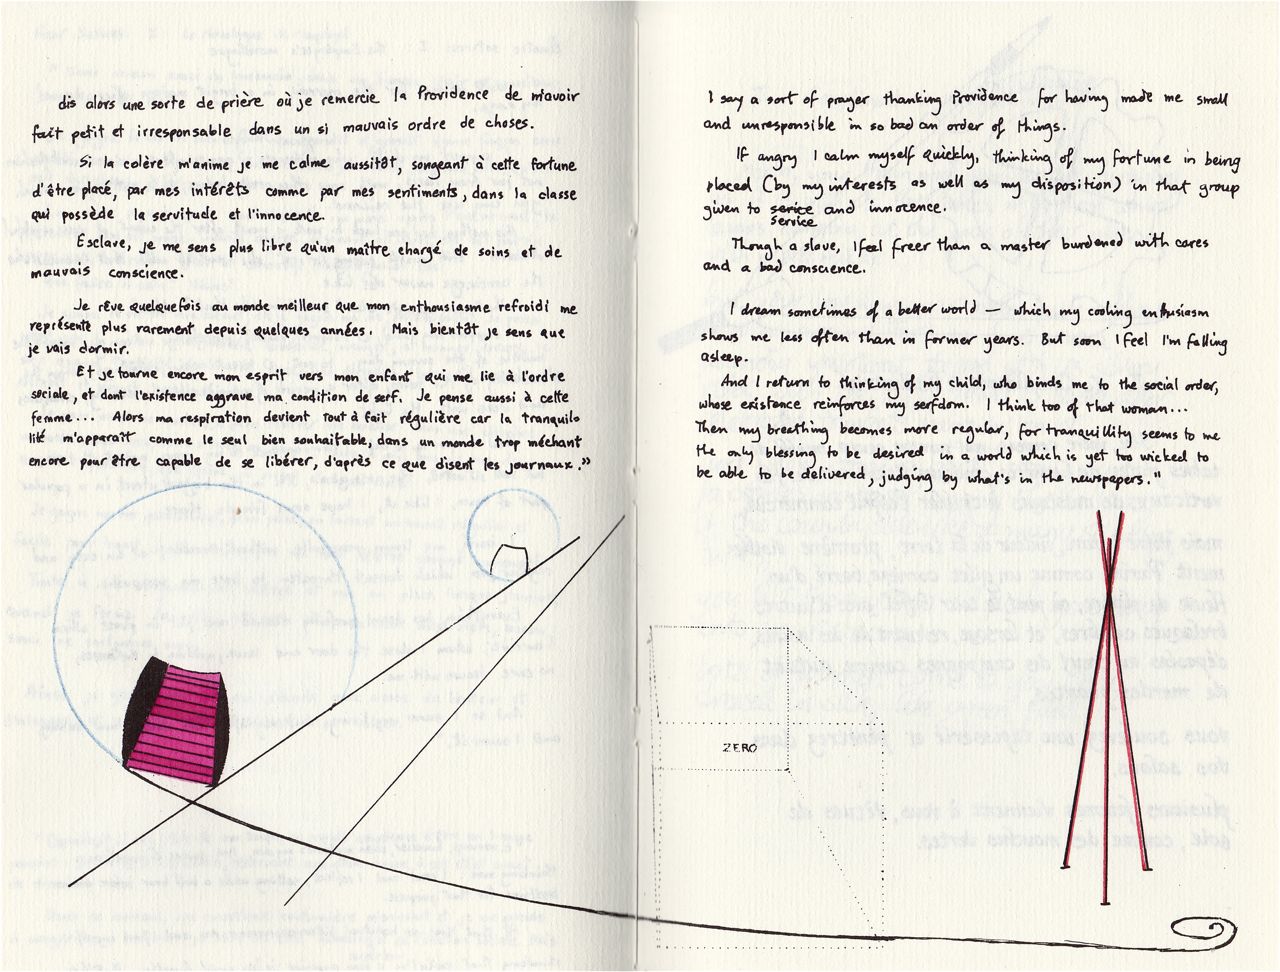 dis alors une sorte de prière où je remercie la Providence de m'avoir
fait petit et irresponsable dans un si mauvais ordre de choses.
Si la colère m'anime je me calme aussitôt, songeant à cette fortune
d'être placé, par mes intérêts comme par mes sentiments, dans la classe
qui possède la servitude et l'innocence.
Esclave, je me sens plus libre qu'un maître chargé de soins et de
mauvais conscience.
Je rêve quelquefois au monde meilleur que mon enthousiasme refroidi me
représente plus rarement depuis quelques années. Mais bientôt je sens que
je vais dormir.
Et je tourne encore mon esprit vers mon enfant qui me lie à l'ordre
sociale, et dont l'existence aggrave ma condition de serf. Je pense aussi à cette
femme... Alors ma respiration devient tout à fait régulière car la tranquil-
lité m'apparaît comme le seul bien souhaitable, dans un monde trop méchant
encore pour être capable de se libérer, d'après ce que disent les journaux.»
I say a sort of prayer thanking Providence for having made me small
and unresponsible in so bad an order of things.
If angry I calm myself quickly, thinking of my fortune in being
placed (by my interests as well as my disposition) in that group
given to serice and innocence.
service
Though a slave, I feel freer than a master burdened with cares
and a bad conscience.
I dream sometimes of a better world — which my cooling enthusiasm
shows me less often than in former years. But soon I feel I'm falling
asleep.
And I return to thinking of my child, who binds me to the social order,
whose existence reinforces my serfdom. I think too of that woman...
Then my breathing becomes more regular, for tranquillity seems to me
the only blessing to be desired in a world which is yet too wicked to
be able to be delivered, judging by what's in the newspapers."
ZERO